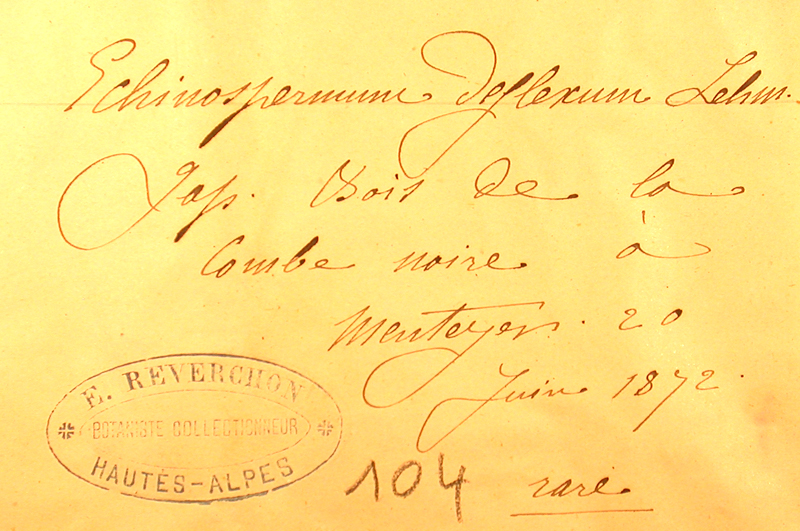 Echinospermum Deflexum Lehm.
Gap. Bois de la
Combe noire à
Menteyer. 20
Juin 1872.
E. REVERCHON
BOTANISTE COLLECTIONNEUR
HAUTES-ALPES
104
rare